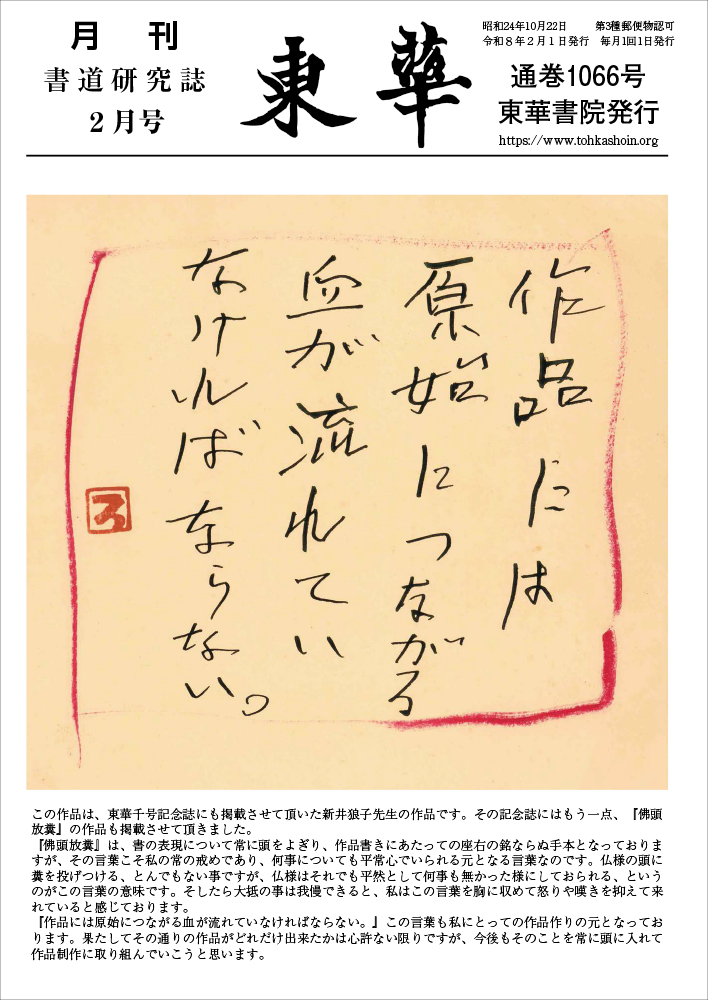 月刊
書道研究誌
2月号
東華
昭和24年10月22日 第3種郵便物認可
令和8年2月1日発行 毎月1回1日発行
通巻1066号
東華書院発行
https://www.tohkashoin.org
作品には
原始につながる
血が流れてい
なければならない。
ろ
この作品は、東華千号記念誌にも掲載させて頂いた新井狼子先生の作品です。その記念誌にはもう一点、『佛頭
放糞』の作品も掲載させて頂きました。
『佛頭放糞』は、書の表現について常に頭をよぎり、作品書きにあたっての座右の銘ならぬ手本となっておりま
すが、その言葉こそ私の常の戒めであり、何事についても平常心でいられる元となる言葉なのです。仏様の頭に
糞を投げつける、とんでもない事ですが、仏様はそれでも平然として何事も無かった様にしておられる、という
のがこの言葉の意味です。そしたら大抵の事は我慢できると、私はこの言葉を胸に収めて怒りや嘆きを抑えて来
れていると感じております。
『作品には原始につながる血が流れていなければならない。』この言葉も私にとっての作品作りの元となってお
ります。果たしてその通りの作品がどれだけ出来たかは心許ない限りですが、今後もそのことを常に頭に入れて
作品制作に取り組んでいこうと思います。